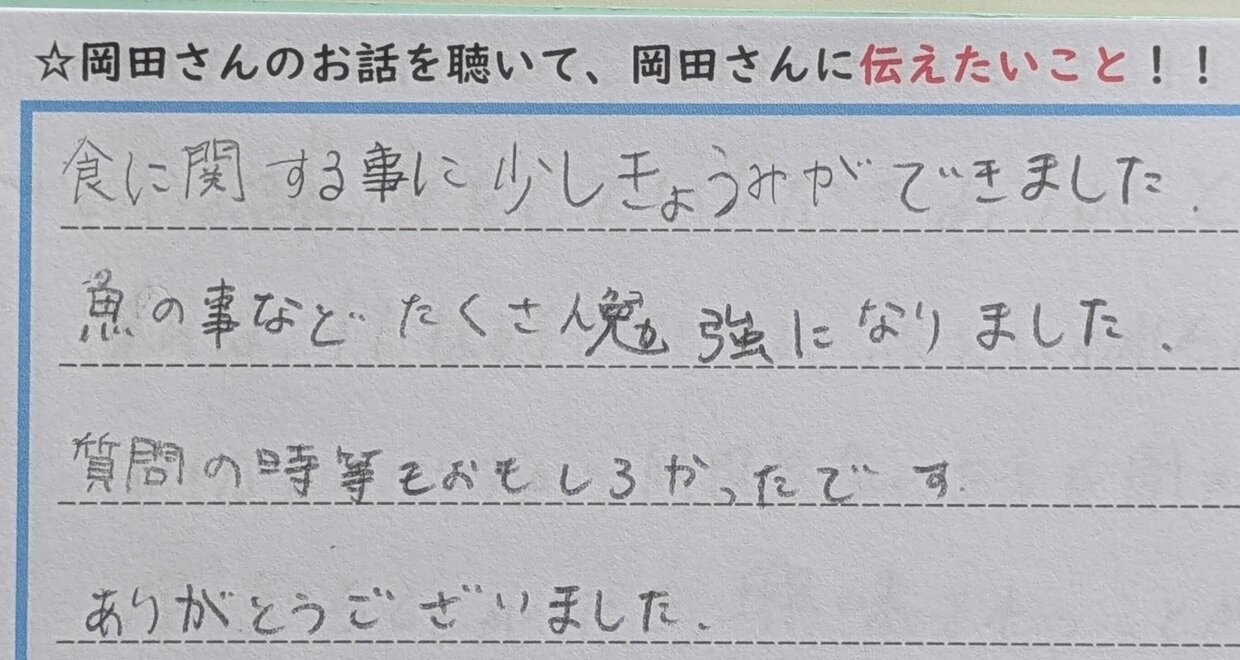 ☆岡田さんのお話を聴いて、岡田さんに伝えたいこと！！
食に関する事に少しきょうみがでてきました.
魚の事などたくさん勉強になりました.
質問の時等もおもしろかったです.
ありがとうございました.